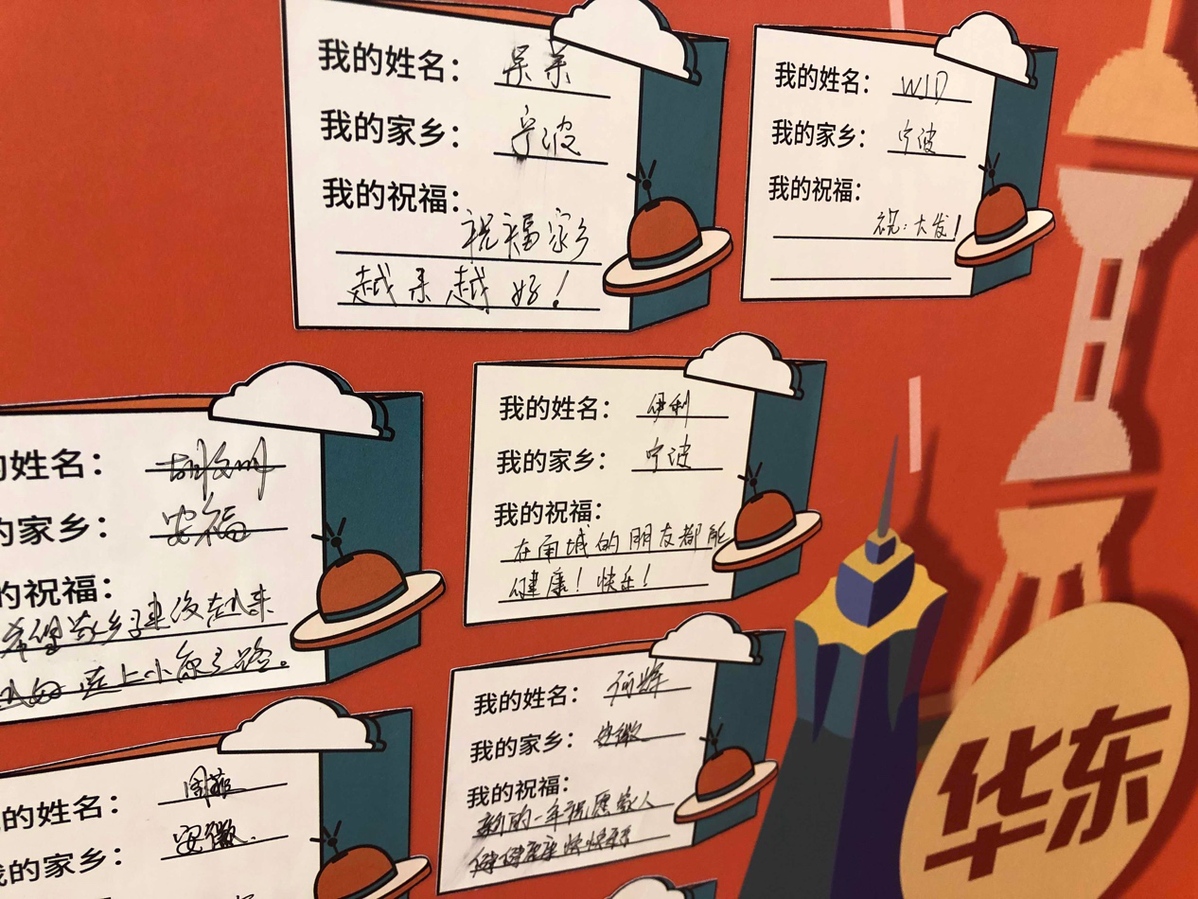 我的姓名：呆呆
我的家乡：宁波
我的祝福：
祝福家乡
越来越好！
我的姓名：WJD
我的家乡：宁波
我的祝福：
祝：大发！
的姓名：
的家乡：安福
的祝福：
希望家乡建设起来
上小康之路。
我的姓名：伊利
我的家乡：宁波
我的祝福：
在甬城的朋友都能
健康！快乐！
我的姓名：何辉
我的家乡：安徽
我的祝福：
新的一年祝愿家人
健健康康快快乐乐
的姓名：周
我的家乡：安徽.
华东